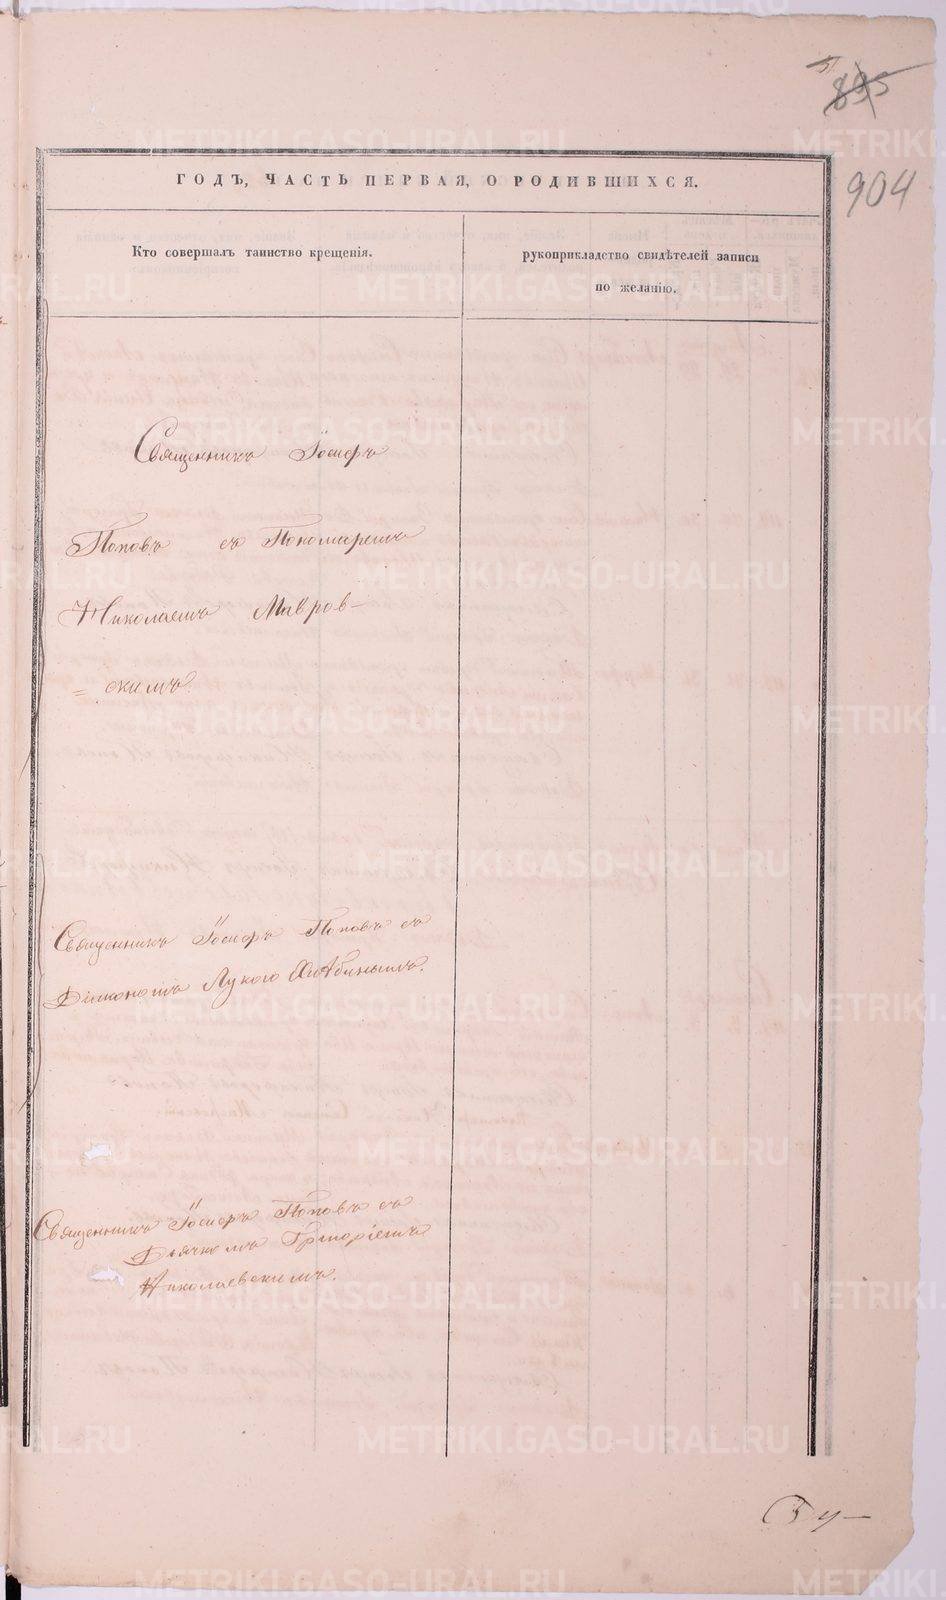 895
904
ГОДЪ, ЧАСТЬ ПЕРВАЯ, О РОДИВШИХСЯ.
Кто совершалъ таинство крещенія.
рукоприкладство свидѣтелей записи
по желанію.
Священникъ Іосифъ
Поповъ съ Пономаремъ
Николаемъ Мавров-
= скимъ.
Священникъ Іосифъ Поповъ съ
Діакономъ Лукою Хлѣбинымъ.
Священникъ Іосифъ Поповъ съ
Дьячкомъ Григоріемъ
Николаевскимъ.
METRIKI.GASO-URAL.RU